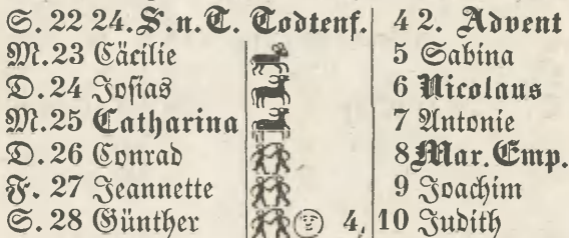 S. 22 24. S. n. T. Todtenf. 4 2. Advent
M. 23 Cäcilie 5 Sabina
D. 24 Josias 6 Nicolaus
M. 25 Catharina 7 Antonie
D. 26 Conrad 8 Mar. Emp.
F. 27 Jeannette 9 Joachim
S. 28 Günther 4, 10 Judith